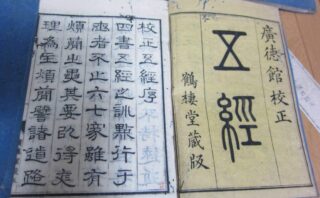 廣德館校正
五經
鶴棲堂藏版
校正五經序
四書五經之訓點行于
世者不止六七家雖有
煩簡之異其要以得
理為主煩簡譬諸道路